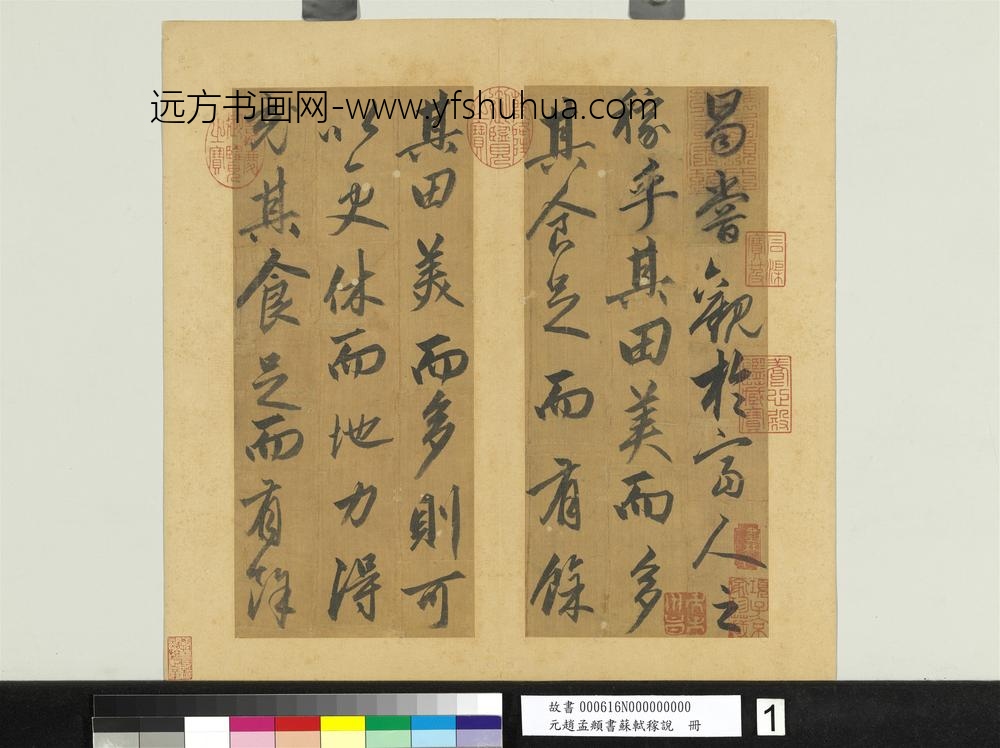 远方书画网-www.yfshuhua.com
曷嘗觀於富人之
稼乎其田美而多
其食足而有餘
其田美而多則可
以更休而地力得
完其食足而有餘
石渠
寶笈
養心殿
鑑藏寶
故書 000616N000000000
元趙孟頫書蘇軾稼說 冊
1